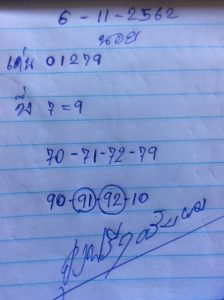 6 - 11 - 2562
นอย
เด่น 01279
วิ่ง 7 = 9
70 - 71 - 72 - 79
90 - 91 - 92 - 10